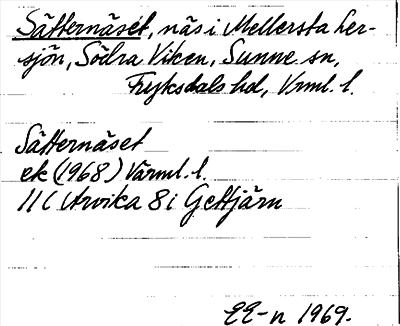 Sätternäset, näs i Mellersta Ler-
sjön, Södra Viken, Sunne sn,
Fryksdals hd, Vrml. l.
Sätternäset
ek (1968) Värml. l.
11 C Arvika 8 i Gettjärn
EE-n 1969.